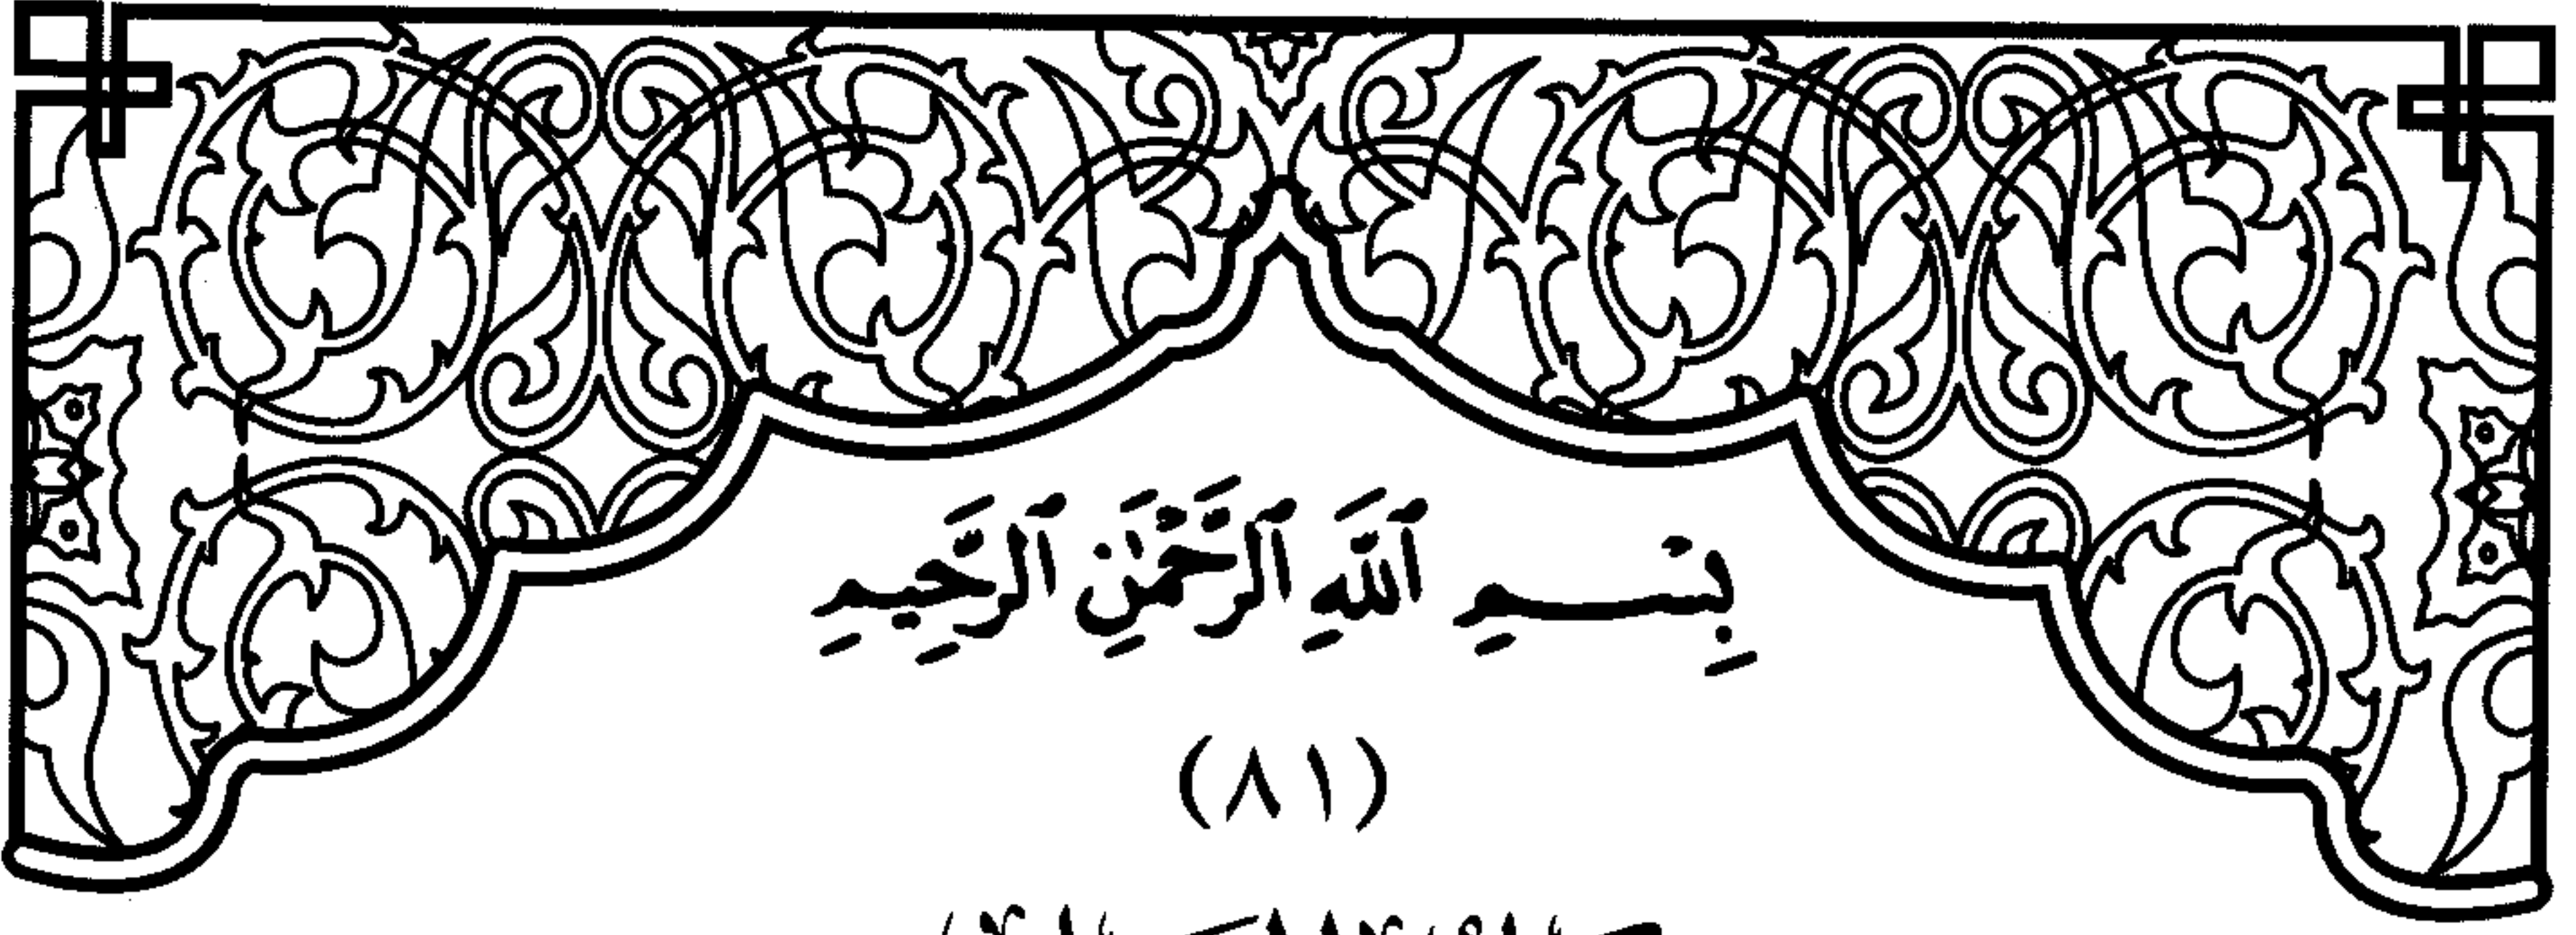 بِسْمِ ٱللَّهِ ٱلرَّحْمَٰنِ ٱلرَّحِيمِ
(٨١)